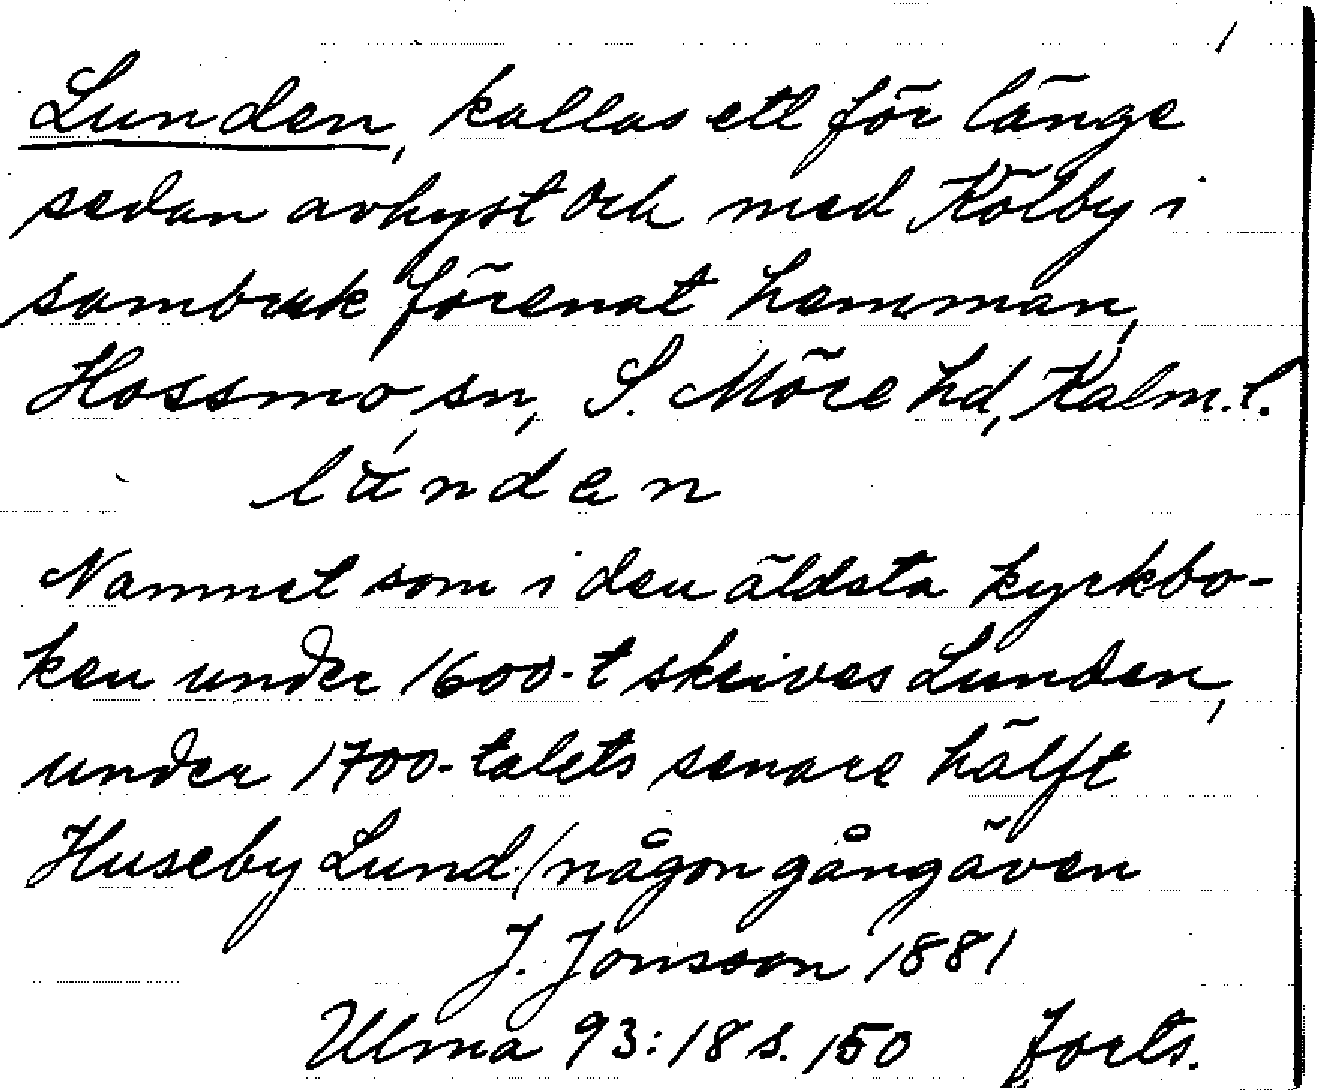 1
Lunden, kallas ett för länge
sedan avhyst och med Kölby i
sambruk förenat hemman,
Hossmo sn, S. Möre hd, Kalm. l.
lunden
Namnet som i den äldsta kyrkbo-
ken under 1600-t skrives Lunden,
under 1700-talets senare hälft
Huseby Lund (någon gång även
J. Jonsson 1881
Ulma 93:18 s. 150 Forts.